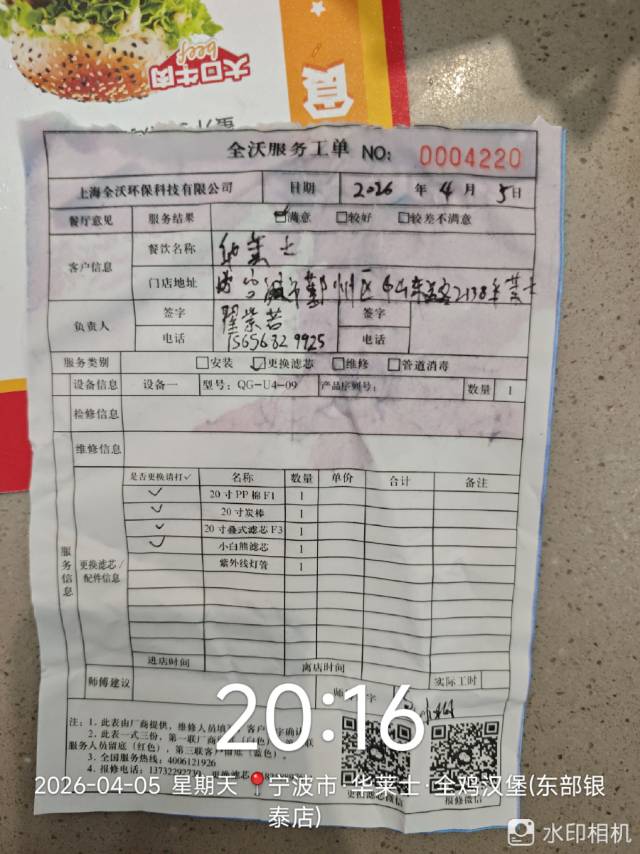 大口牛肉
beef
全沃服务工单 NO: 0004220
上海全沃环保科技有限公司 日期 2026 年 4 月 5 日
餐厅意见 服务结果 ☑满意 □较好 □较差不满意
客户信息 餐饮名称 华莱士
门店地址
负责人 签字 签字
电话 15656829925 电话
服务类别 □安装 ☑更换滤芯 □维修 □管道消毒
设备信息 设备一 型号: QG-U4-09 产品序列号: 数量 1
检修信息
维修信息
服务信息 更换滤芯/配件信息
是否更换请打✓ 名称 数量 单价 合计 备注
✓ 20寸PP棉F1 1
✓ 20寸炭棒 1
✓ 20寸叠式滤芯F3 1
✓ 小白熊滤芯 1
紫外线灯管 1
进店时间 离店时间
师傅建议 实际工时
注: 1. 此表由厂商提供, 维修人员填
2. 此表一式三份, 第一联厂商
服务人员留底 (红色), 第三联客户留底 (蓝色)。
3. 全国服务热线: 4006121926
4. 报修电话:
报修微信
20:16
2026-04-05 星期天 宁波市·华莱士·全鸡汉堡(东部银泰店)
水印相机